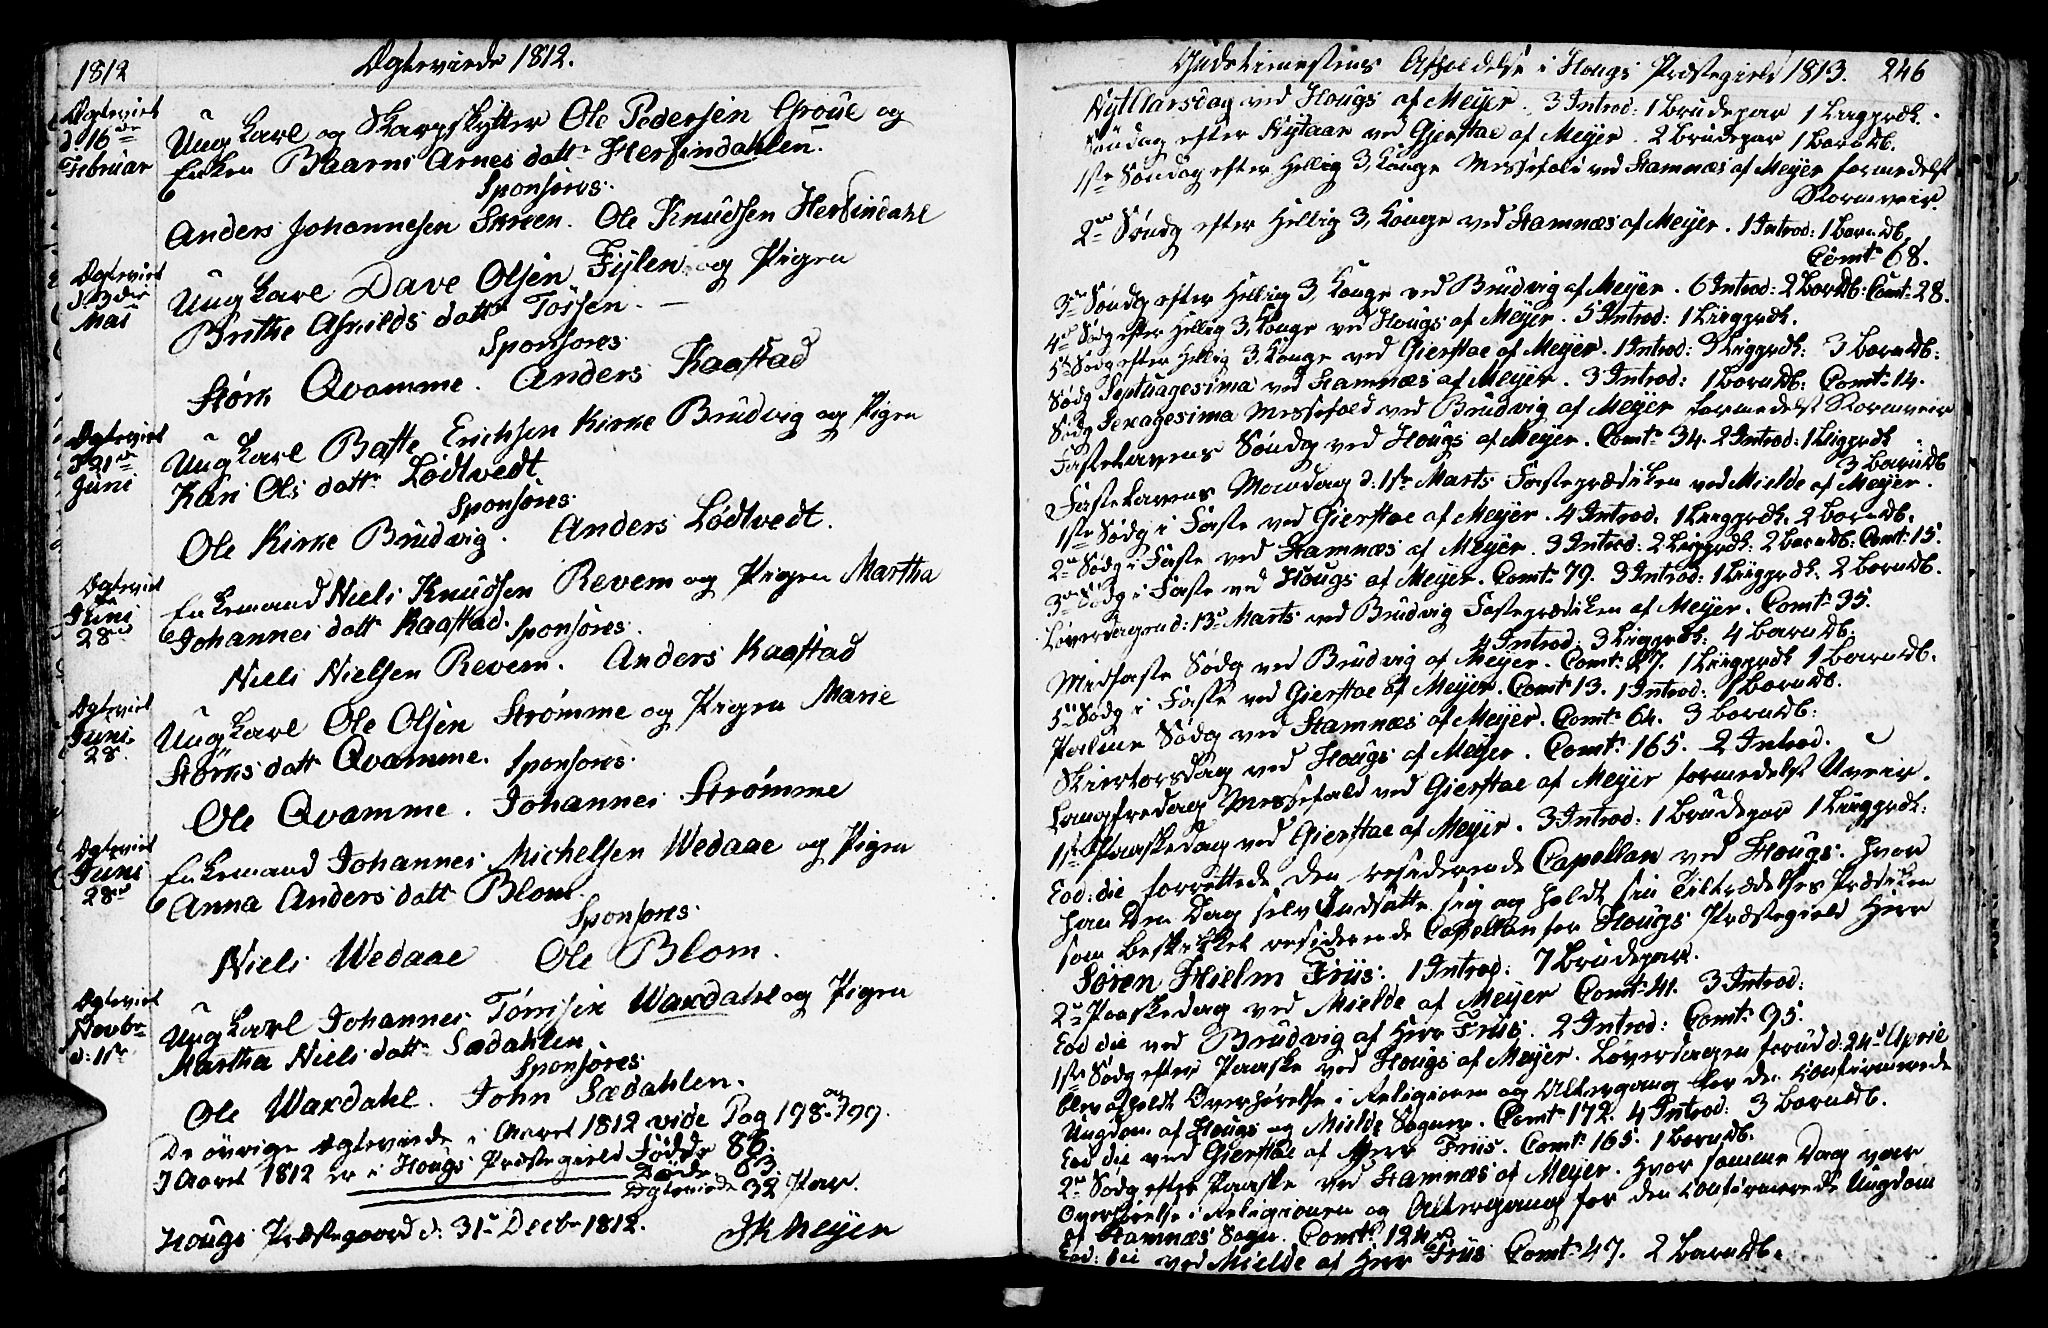 1812
Ægteviede 1812.
Ægteviet
d. 16de
Februar
Ungkarl og Skarpskytter Ole Pedersen Groue og
Enken Baarni Arnes datt. Herfindahlen.
Sponsores.
Anders Johannesen Skreen. Ole Knudsen Herfindahl
Ægteviet
d. 3die
Mai
Ungkarl Dave Olsen Fylen og Pigen
Brithe Asfuelds datt. Tossen.
Sponsores
Størk Qvamme. Anders Kaastad
Ægteviet
d 21de
Juni
Ungkarl Baste Erichsen Kirke Brudvig og Pigen
Kari Ols datt. Lødtvedt
Sponsores
Ole Kirke Brudvig. Anders Lødtvedt.
Ægteviet
Juni
28de
Enkemand Niels Knudsen Revem og Pigen Martha
Johannes datt. Kaastad.
Sponsores.
Niels Nielsen Revem. Anders Kaastad
Ægteviet
Juni
28.
Ungkarl Ole Olsen Strømme og Pigen Marie
Størks datt. Qvamme.
Sponsores.
Ole Qvamme. Johannes Strømme
Ægteviet
Juni
28de
Enkemand Johannes Michelsen Wedaae og Pigen
Anna Anders datt. Blom.
Sponsores
Niels Wedaae Ole Blom.
Ægteviet
Novbr
d: 1ste
Ungkarl Johannes Tørrisen Waxdahl og Pigen
Martha Niels datt. Sædahlen
Sponsores
Ole Waxdahl. John Sædahlen.
De øvrige Ægteviede i Aaret 1812 vide Pag 198 og 199.
I Aaret 1812 er i Hougs Præstegield Fødde 86.
Døde 83.
Ægteviede 32 Par.
Hougs Præstegaard d. 31te Decbr 1812. JK Meyer
Gudstienestens Afholdelse i Hougs Præstegield 1813. 246
Nytaarsdag ved Hougs af Meyer. 3 Introd: 1 Brudepar 1 Liigprdk.
Søndag efter Nytaar ved Gierstae af Meyer. 2 Brudepar 1 Barndb.
1ste Søndag efter Hellig 3 Konge Messefald ved Stamnæs af Meyer formedelst
Stormveir.
2den Søndg efter Hellig 3 Konge ved Stamnæs af Meyer. 1 Introd: 1 Barndb.
Comt. 68.
3die Søndg efter Hellig 3 Konge ved Brudvig af Meyer. 6 Introd: 2 Barndb: Comt. 28.
4de Sødg efter Hellig 3 Konge ved Hougs af Meyer. 5 Introd: 1 Liigprdk.
5te Sødg efter Hellig 3 Konge ved Gierstae af Meyer. 1 Introd: 3 Liigprdk: 3 Barndb:
Sødg Septuagesima ved Stamnæs af Meyer. 3 Introd: 1 Barndb: Comt. 14.
Sødg Sexagesima Messefald ved Brudvig af Meyer formedelst Stormveir
Fastelavens Søndg ved Hougs af Meyer. Comt. 34. 2 Introd: 1 Liigprdk
3 Barndb
Fastelavens Mandag d: 1ste Marts Fasteprædiken ved Mielde af Meyer.
1ste Sødg i Faste ved Gierstae af Meyer. 4 Introd. 1 Liigprdk. 2 Barndb.
2den Sødg i Faste ved Stamnæs af Meyer. 3 Introd: 2 Liigprdk: 2 Barndb: Comt. 15.
3die Sødg i Faste ved Hougs af Meyer. Comt. 79. 3 Introd: 1 Liigprdk. 2 Barndb.
Løverdagen d: 13de Marts ved Brudvig Fasteprædiken af Meyer. Comt. 35.
4 Introd. 3 Liigprdk: 4 Barndb.
Midfaste Sødg ved Brudvig af Meyer. Comt. 27. 1 Liigprdk 1 Barndb.
5te Sødg i Faste ved Gierstae af Meyer. Comt 13. 1 Introd: 1 Barndb.
Palme Sødg ved Stamnæs af Meyer. Comt. 64. 3 Barndb:
Skiertorsdag ved Hougs af Meyer. Comt. 165. 2 Introd.
Langfredag Messefald ved Gierstae af Meyer formedelst Uveir.
1ste Paaskedag ved Gierstae af Meyer. 3 Introd: 1 Brudepar 1 Liigprdk:
Eod: die forrettede den residerende Capellan ved Hougs. hvor
han den Dag selv Indsatte sig og holdt sin Tiltrædelses Prædiken
som beskikket residerende Capellan for Hougs Præstegield Herr
Søren Hielm Friis. 1 Introd: 7 Brudepar.
2den Paaskedag ved Mielde af Meyer Comt. 41. 3 Introd:
Eod die ved Brudvig af Herr Friis. 2 Introd: Comt. 95.
1ste Sødg efter Paaske ved Hougs af Meyer. Løverdagen forud d: 24de April
blev afholdt Overhørelse i Religionen og Altergang for den confirmerede
Ungdom af Hougs og Mielde Sogne. Comt. 172. 4 Introd: 3 Barndb.
Eod die ved Gierstae af Herr Friis. Comt. 165. 1 Barndb.
2den Sødg efter Paaske ved Stamnæs af Meyer. Hvor samme Dag var
Overhørelse i Religionen og Altergang for den confirmerede Ungdom
af Stamnæs Sogn. Comt. 124.
Eod: die ved Mielde af Herr Friis Comt. 47. 2 Barndb.